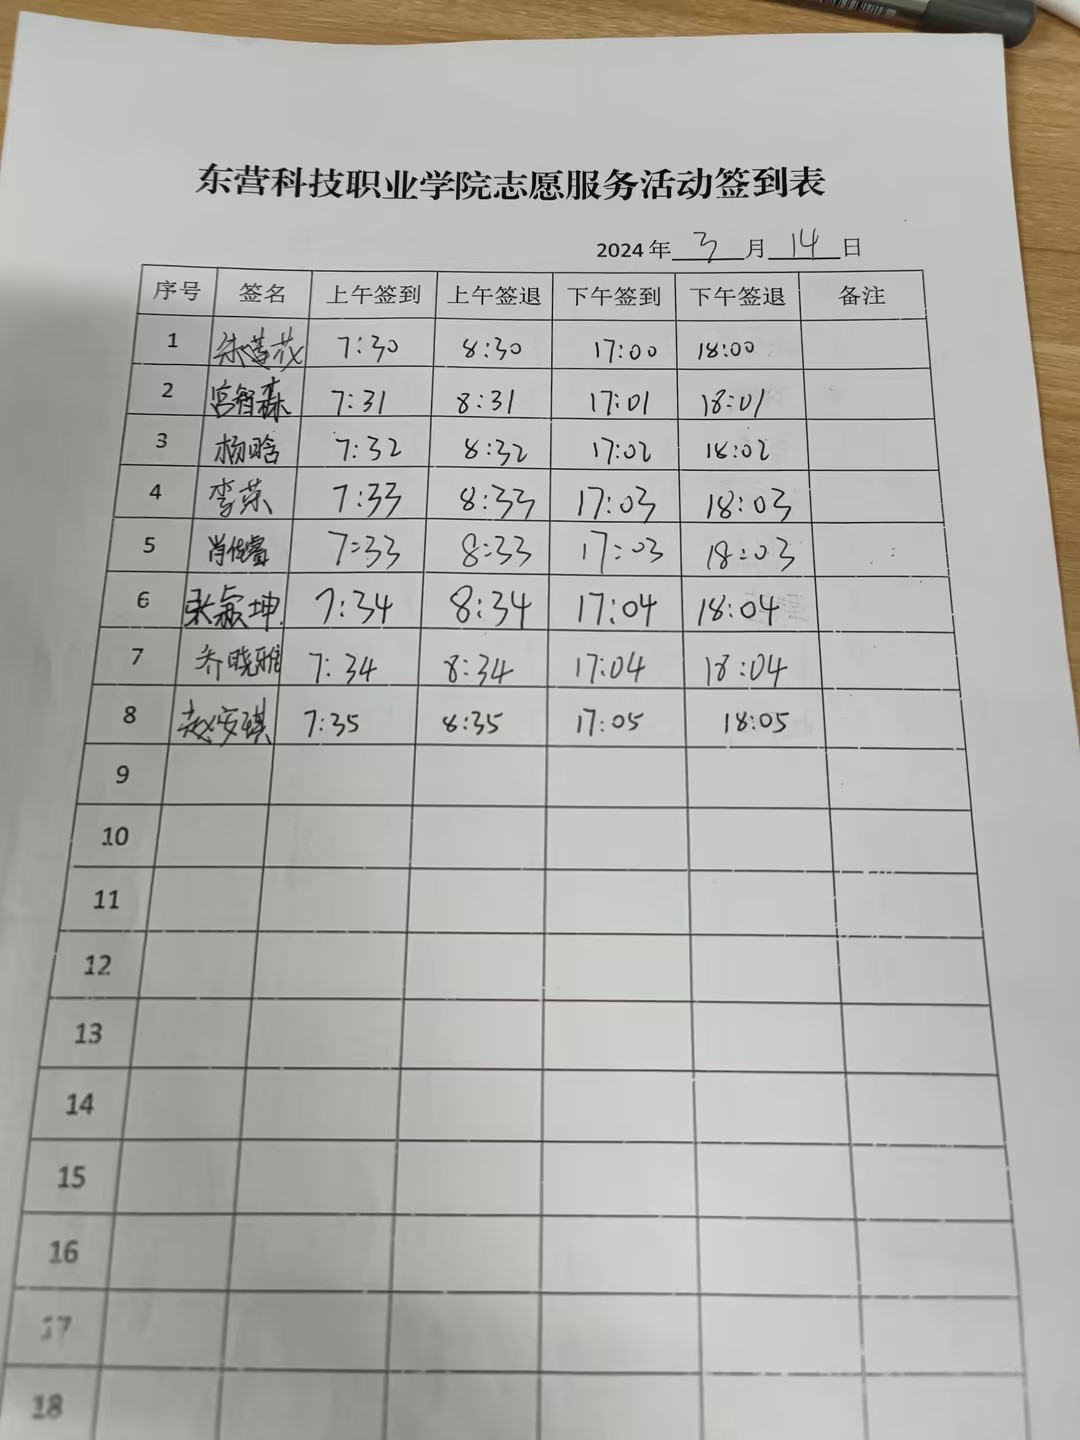 东营科技职业学院志愿服务活动签到表
2024 年 3 月 14 日
序号 签名 上午签到 上午签退 下午签到 下午签退 备注
1 7:30 8:30 17:00 18:00
2 宫智森 7:31 8:31 17:01 18:01
3 杨晗 7:32 8:32 17:02 18:02
4 李荣 7:33 8:33 17:03 18:03
5 7:33 8:33 17:03 18:03
6 张颖坤 7:34 8:34 17:04 18:04
7 乔晓雅 7:34 8:34 17:04 18:04
8 赵安琪 7:35 8:35 17:05 18:05
9
10
11
12
13
14
15
16
17
18